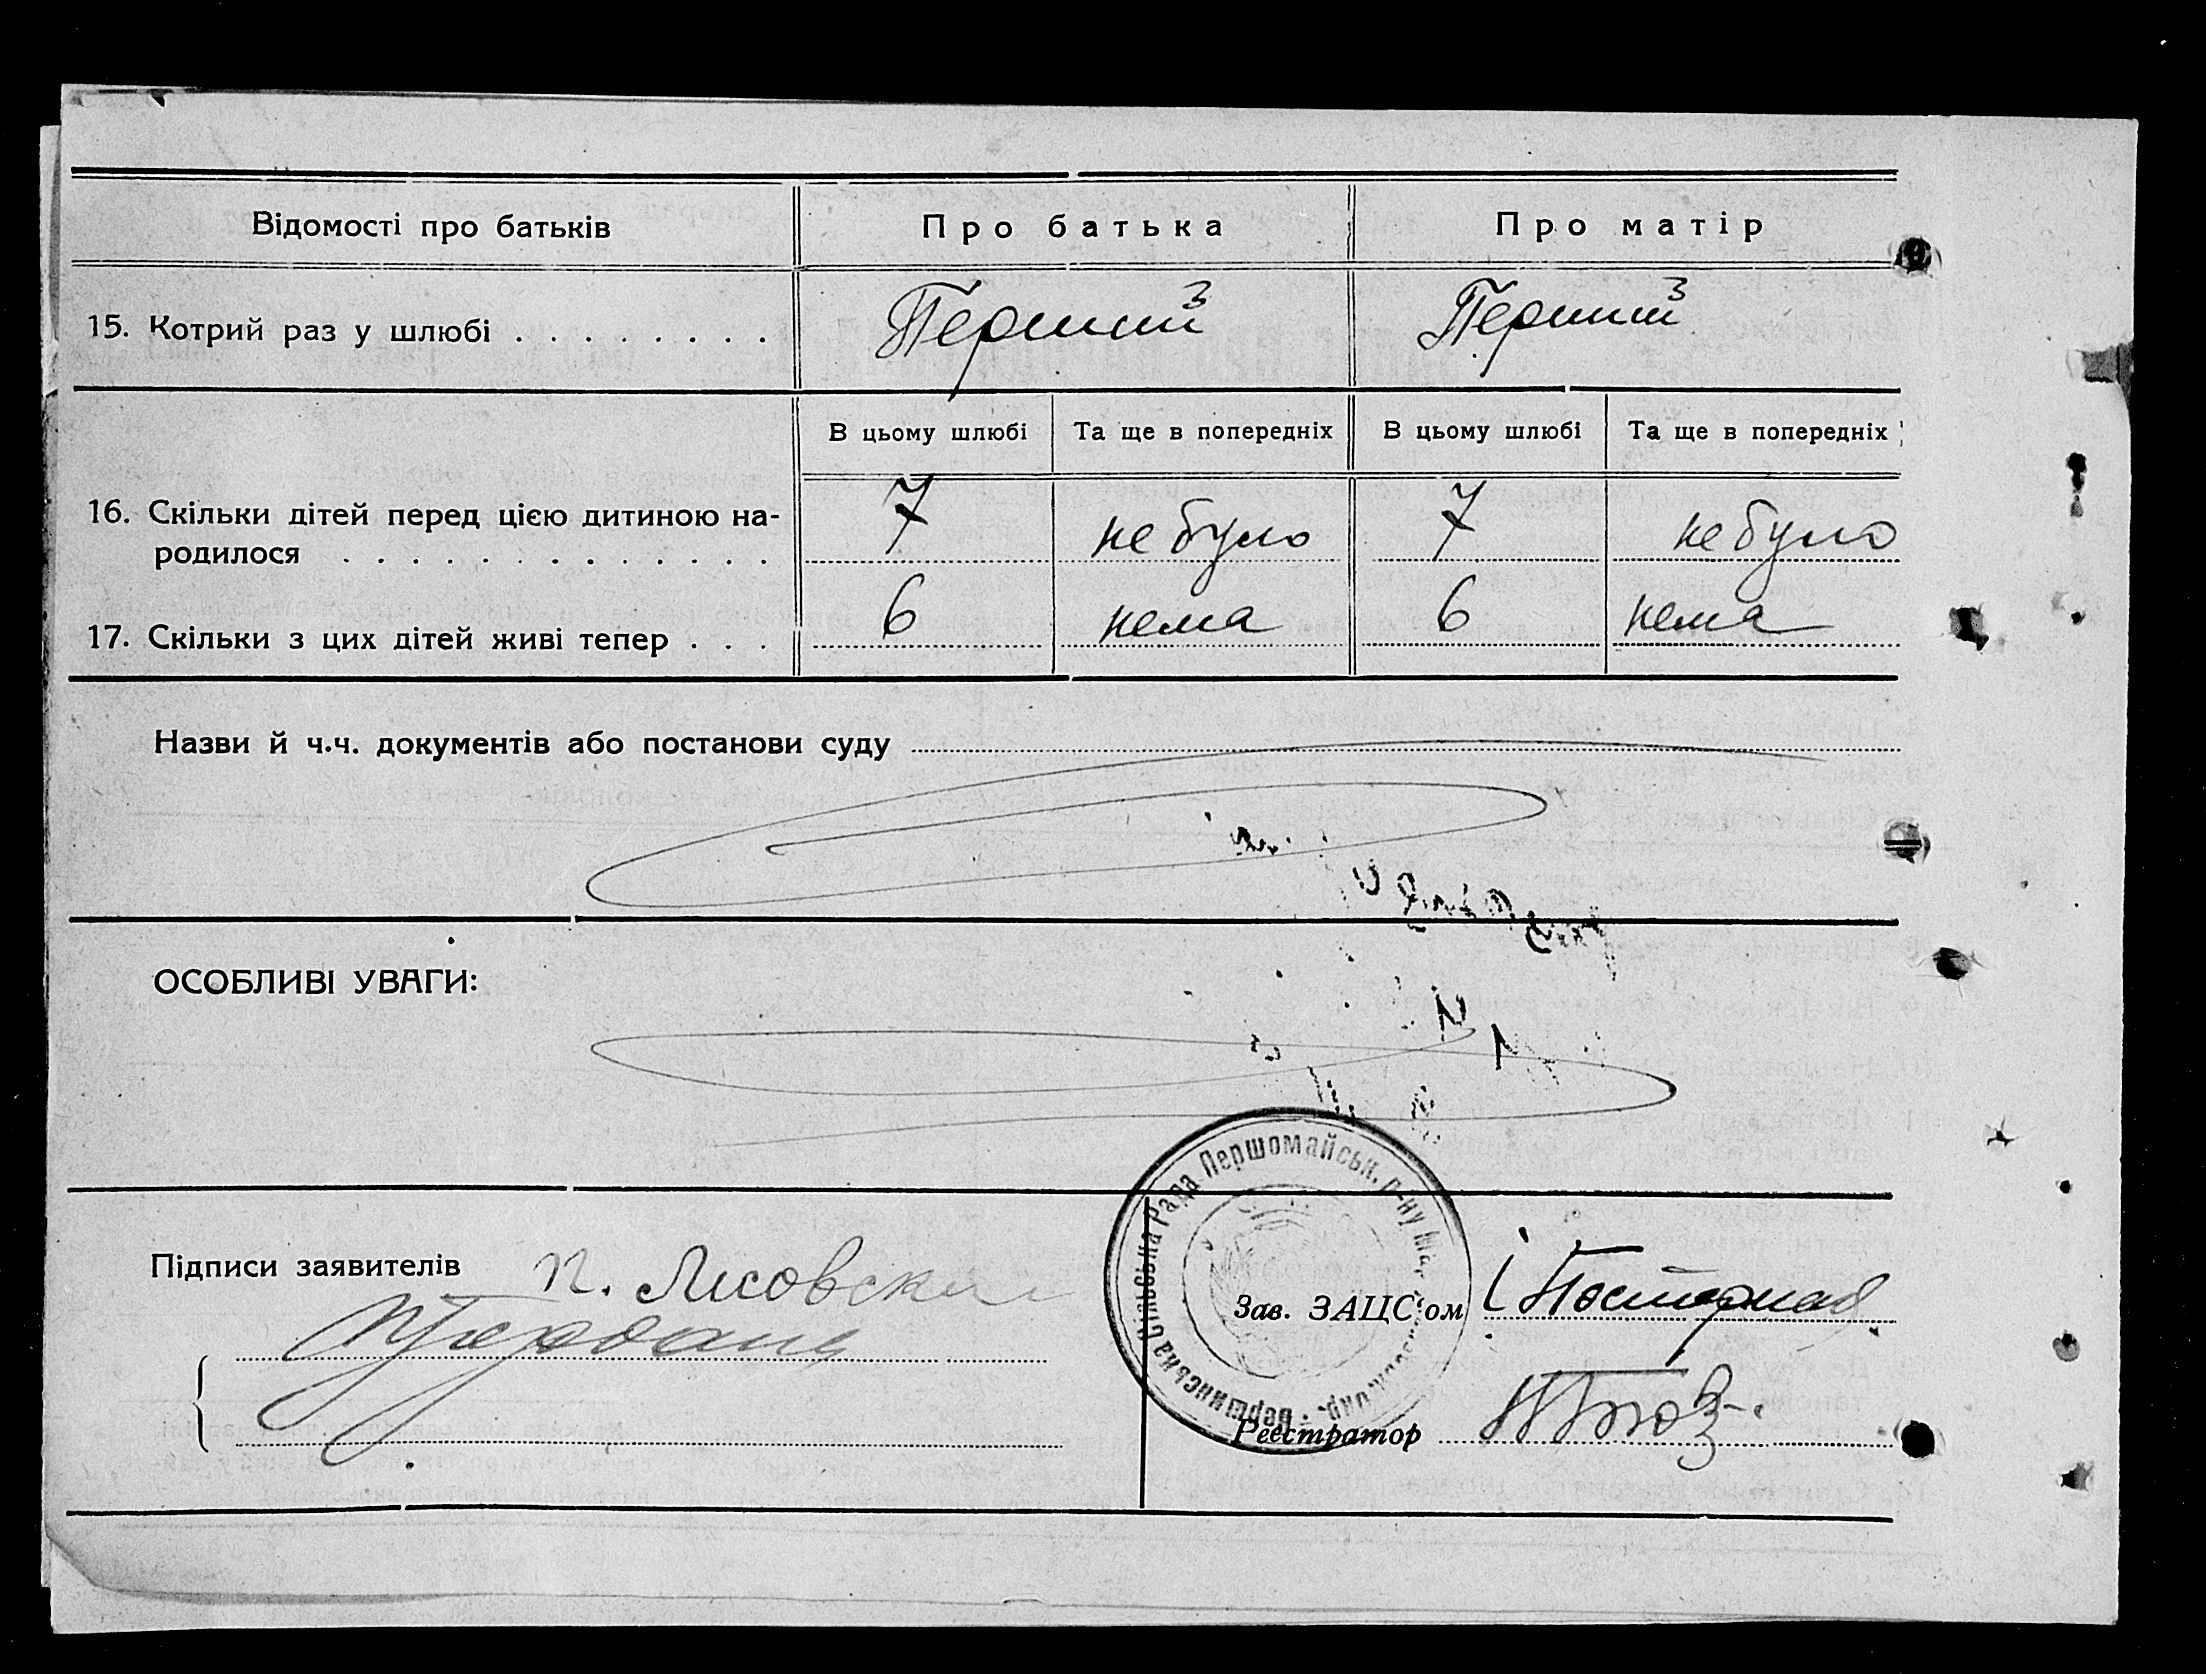 Відомості про батьків Про батька Про матір
15. Котрий раз у шлюбі . . . . . . . . Перший Перший
В цьому шлюбі Та ще в попередніх В цьому шлюбі Та ще в попередніх
16. Скільки дітей перед цією дитиною на-
родилося . . . . . . . . . . . . . 7 не було 7 не було
17. Скільки з цих дітей живі тепер . . . 6 нема 6 нема
Назви й ч.ч. документів або постанови суду
ОСОБЛИВІ УВАГИ:
Рада Першомайськ. р-ну
Підписи заявителів П. Лисовска
Зав. ЗАЦС'ом
Реєстратор